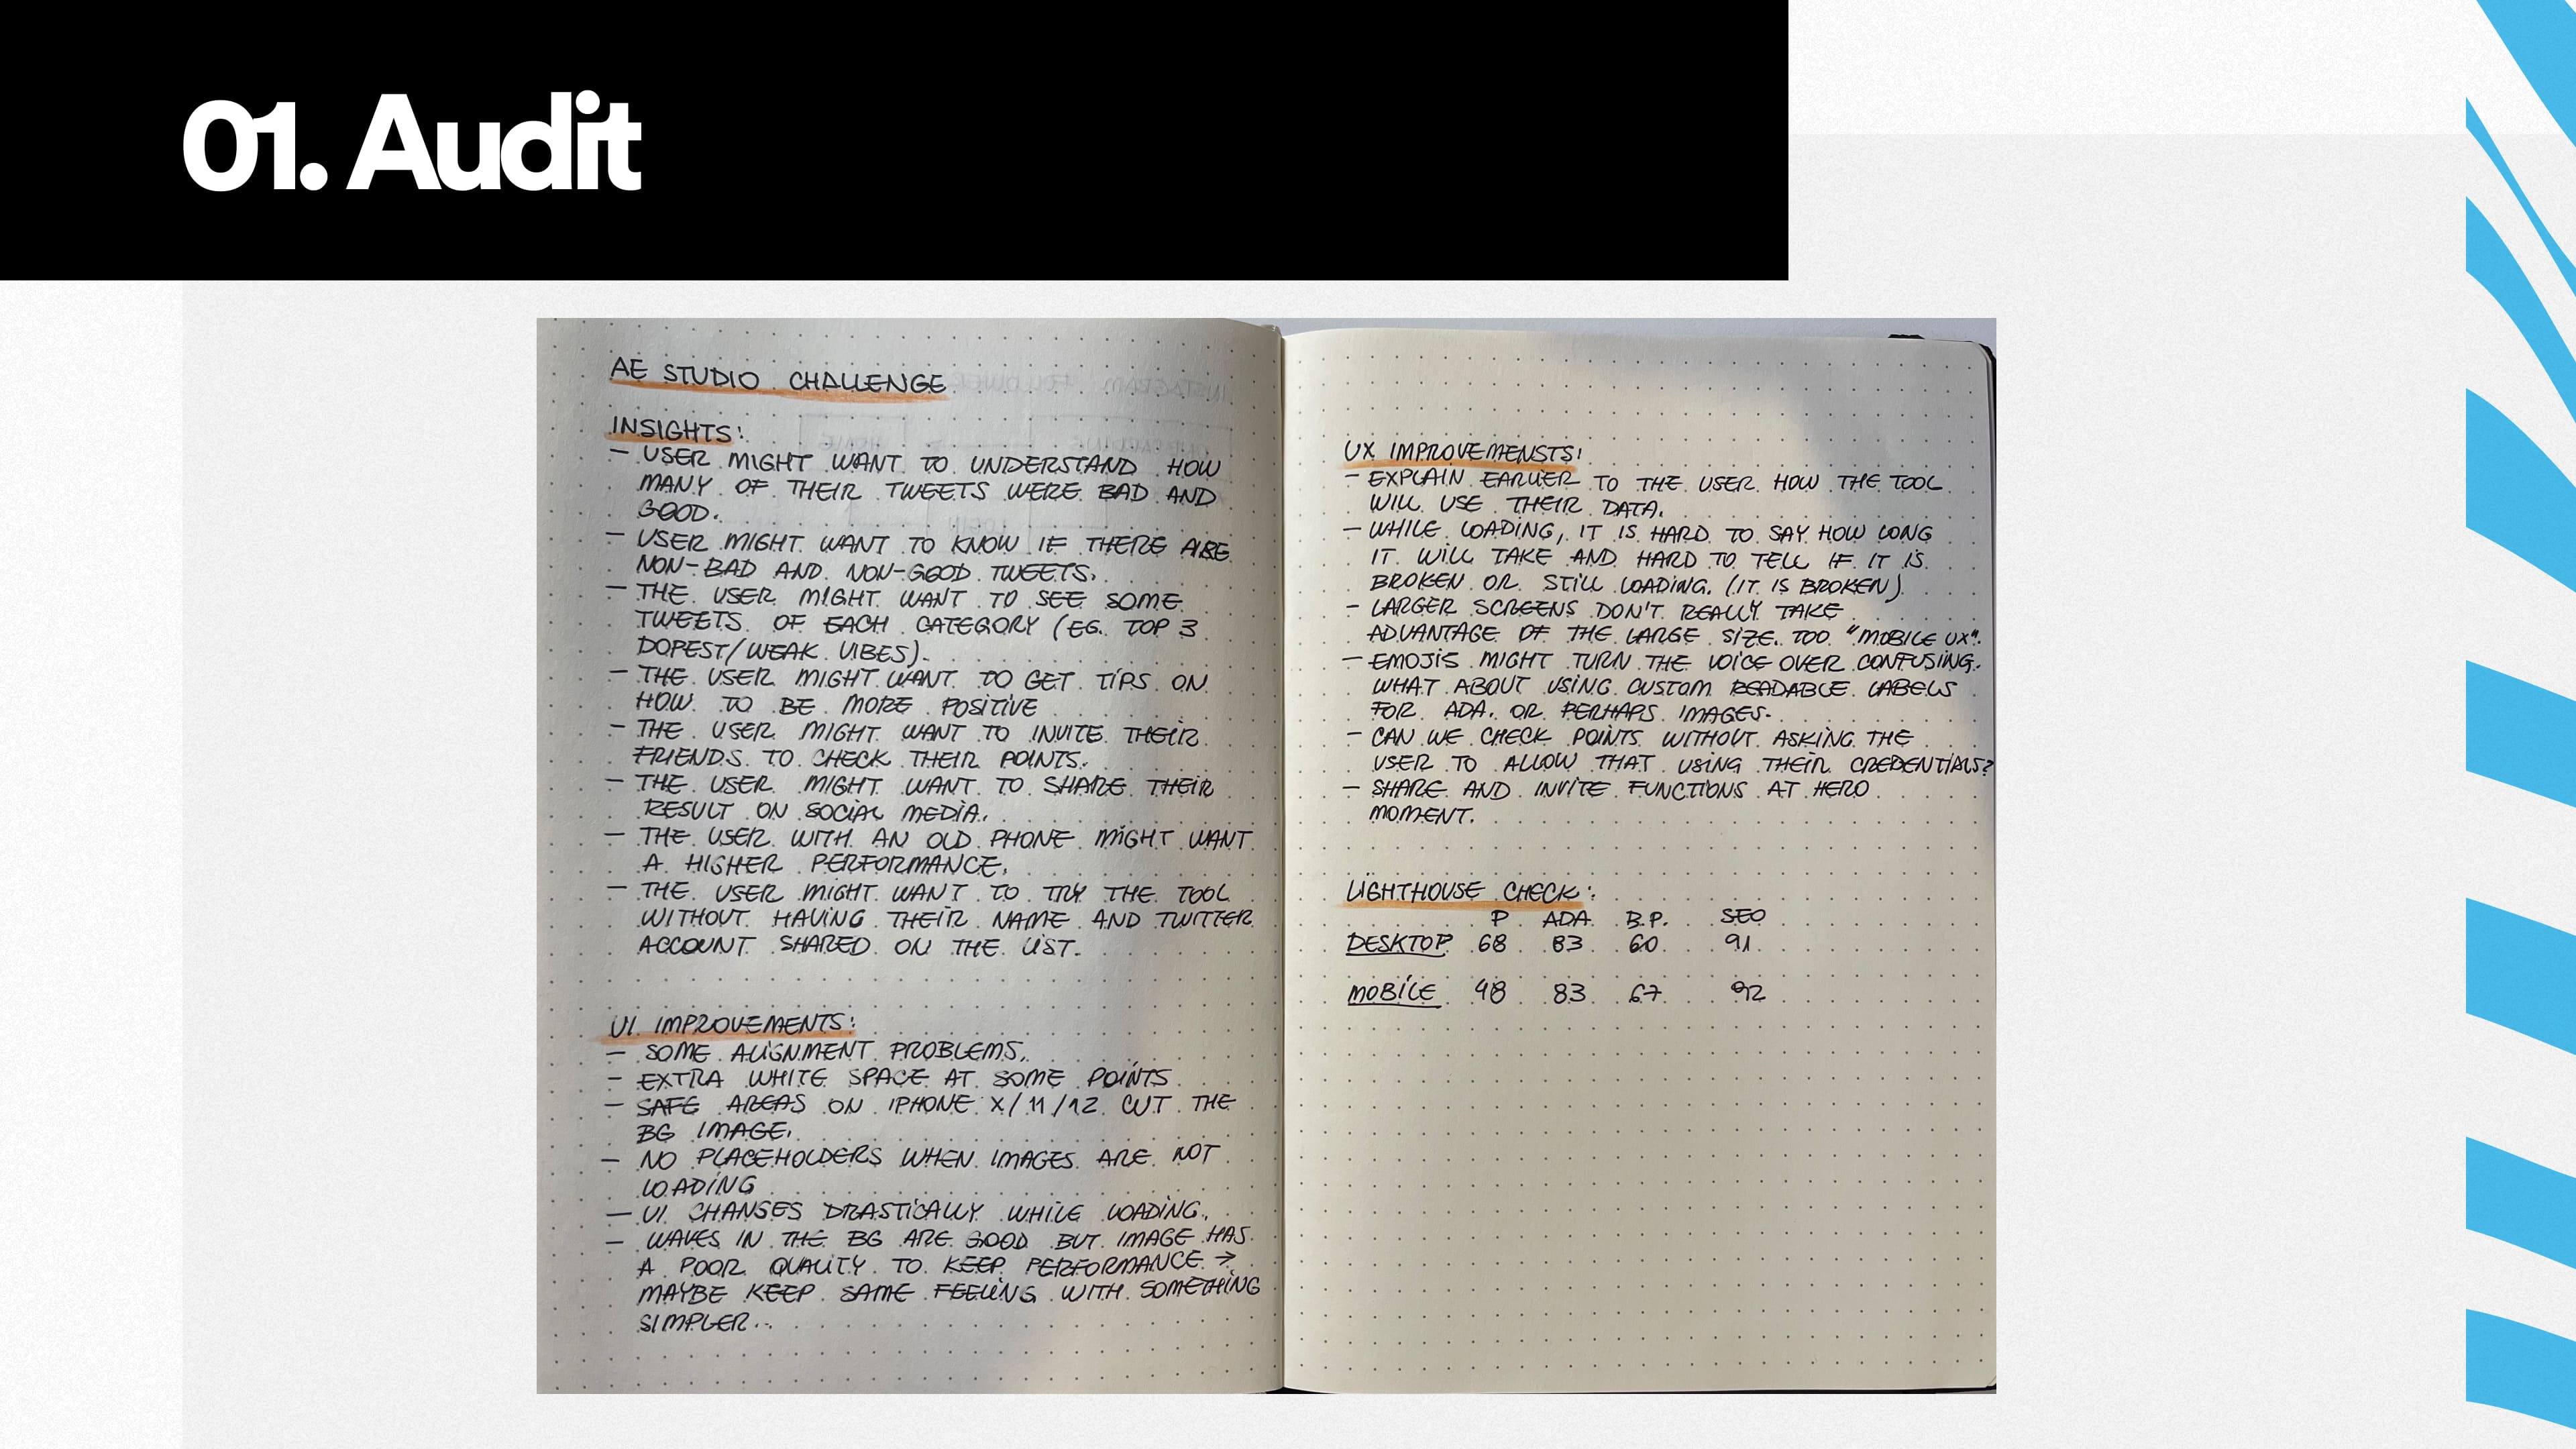 01. Audit
AE STUDIO CHALLENGE
INSIGHTS:
- USER MIGHT WANT TO UNDERSTAND HOW
MANY OF THEIR TWEETS WERE BAD AND
GOOD.
- USER MIGHT WANT TO KNOW IF THERE ARE
NON-BAD AND NON-GOOD TWEETS.
- THE USER MIGHT WANT TO SEE SOME
TWEETS OF EACH CATEGORY (EG. TOP 3
DOPEST/WEAK VIBES).
- THE USER MIGHT WANT TO GET TIPS ON
HOW TO BE MORE POSITIVE
- THE USER MIGHT WANT TO INVITE THEIR
FRIENDS TO CHECK THEIR POINTS.
- THE USER MIGHT WANT TO SHARE THEIR
RESULT ON SOCIAL MEDIA.
- THE USER WITH AN OLD PHONE MIGHT WANT
A HIGHER PERFORMANCE.
- THE USER MIGHT WANT TO TRY THE TOOL
WITHOUT HAVING THEIR NAME AND TWITTER
ACCOUNT SHARED ON THE LIST.
UI IMPROVEMENTS:
- SOME ALIGNMENT PROBLEMS.
- EXTRA WHITE SPACE AT SOME POINTS
- SAFE AREAS ON IPHONE X/11/12 CUT THE
BG IMAGE.
- NO PLACEHOLDERS WHEN IMAGES ARE NOT
LOADING
- UI CHANGES DRASTICALLY WHILE LOADING.
- WAVES IN THE BG ARE GOOD BUT IMAGE HAS
A POOR QUALITY TO KEEP PERFORMANCE →
MAYBE KEEP SAME FEELING WITH SOMETHING
SIMPLER..
UX IMPROVEMENSTS:
- EXPLAIN EARLIER TO THE USER HOW THE TOOL
WILL USE THEIR DATA.
- WHILE LOADING, IT IS HARD TO SAY HOW LONG
IT WILL TAKE AND HARD TO TELL IF IT IS
BROKEN OR STILL LOADING. (IT IS BROKEN)
- LARGER SCREENS DON'T REALLY TAKE
ADVANTAGE OF THE LARGE SIZE. TOO "MOBILE UX".
- EMOJIS MIGHT TURN THE VOICE OVER CONFUSING.
WHAT ABOUT USING CUSTOM READABLE LABELS
FOR ADA. OR PERHAPS IMAGES.
- CAN WE CHECK POINTS WITHOUT ASKING THE
USER TO ALLOW THAT USING THEIR CREDENTIALS?
- SHARE AND INVITE FUNCTIONS AT HERO
MOMENT.
LIGHTHOUSE CHECK:
P ADA B.P. SEO
DESKTOP 68 83 60 91
MOBILE 48 83 67 92